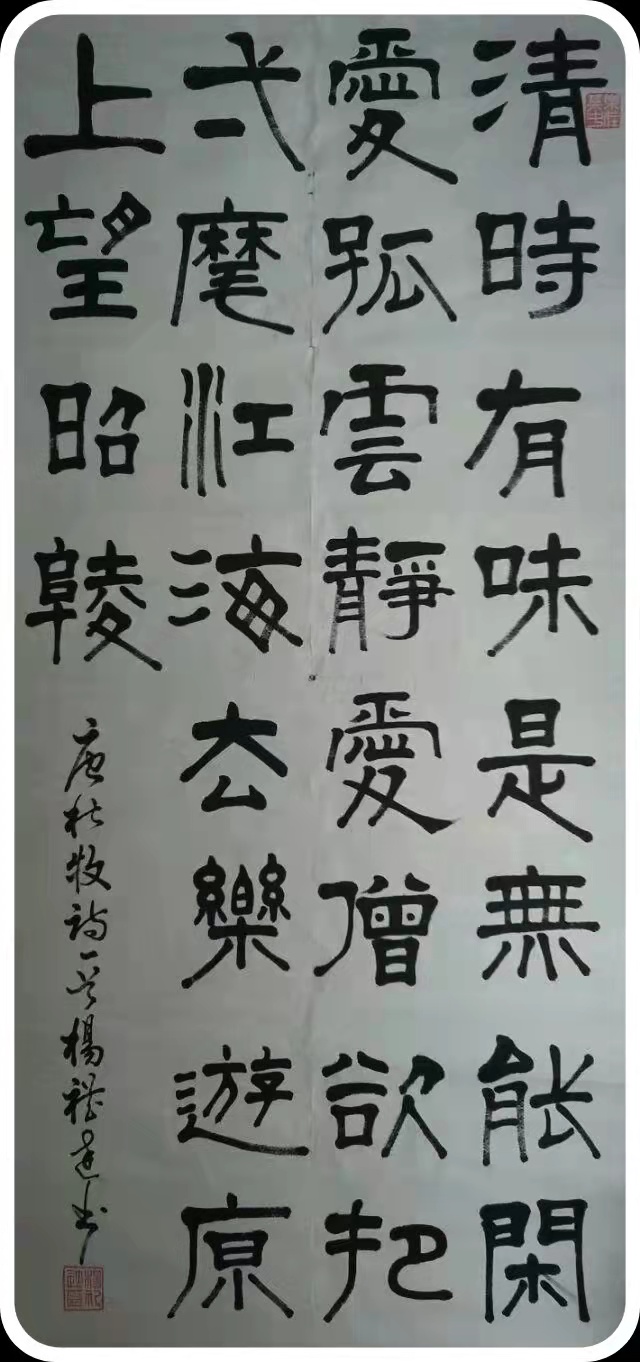 清時有味是無能閑
愛孤雲靜愛僧欲把
弌麾江海厺樂遊原
上望昭陵
唐杜牧詩一首楊禮達书